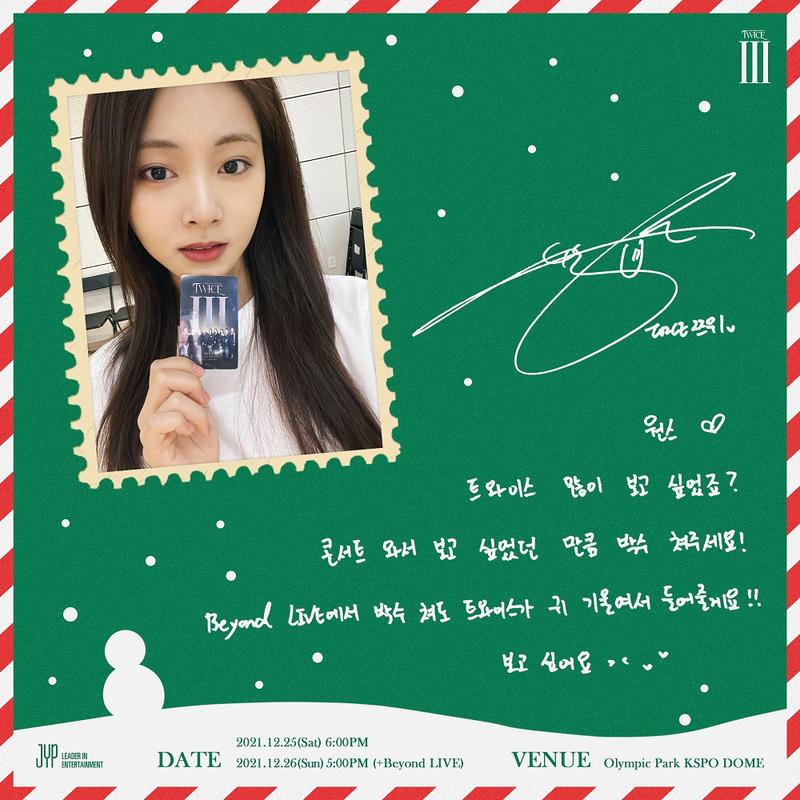 TWICE
III
TWICE
III
TWICE 쯔위
원스 ♡
트와이스 많이 보고 싶었죠?
콘서트 와서 보고 싶었던 만큼 박수 쳐주세요!
Beyond LIVE에서 박수 쳐도 트와이스가 귀 기울여서 들어줄게요!!
보고 싶어요 >< ♥♥
JYP LEADER IN ENTERTAINMENT
DATE
2021.12.25(Sat) 6:00PM
2021.12.26(Sun) 5:00PM (+Beyond LIVE)
VENUE Olympic Park KSPO DOME